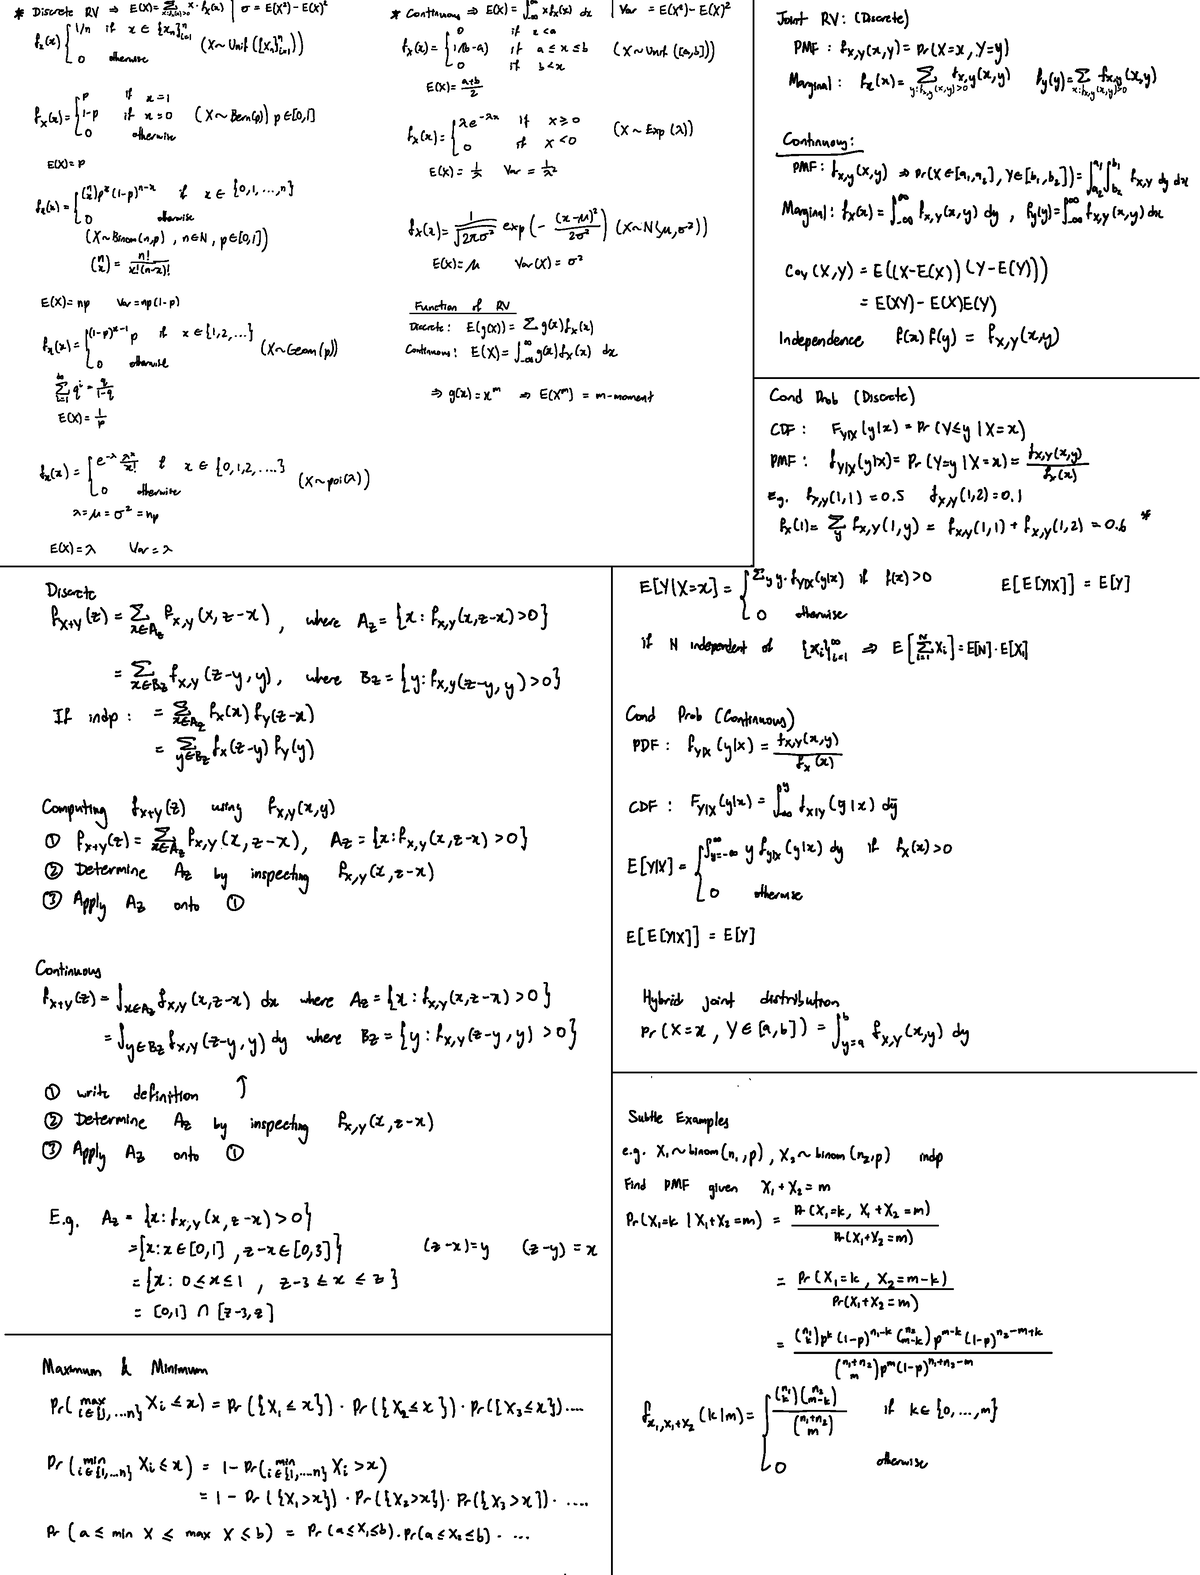 * Discrete RV ⇒ E(X)= Σ_{x:f_x(x)>0} x·f_x(x) | σ = E(X²)-E(X)²
f_x(x) { 1/n if x ∈ {x_n}ⁿ_{i=1} (X~Unif({x_n}ⁿ_{i=1}))
0 otherwise
f_X(x) = { p if x=1
1-p if x=0 (X~Bern(p)) p∈[0,1]
0 otherwise
E(X)=p
f_x(x) = { (n x) p^x (1-p)^{n-x} if x ∈ {0,1,...,n}
0 otherwise
(X~Binom(n,p), n∈N, p∈[0,1])
(n x) = n!/x!(n-x)!
E(X)=np Var=np(1-p)
f_x(x) = { (1-p)^{x-1} p if x∈{1,2,...} (X~Geom(p))
0 otherwise
Σ^∞_{i=1} q^i = q/1-q
E(X)= 1/p
f_x(x) = { e^{-λ} λ^x/x! if x ∈ {0,1,2,....} (X~poi(λ))
0 otherwise
λ=μ=σ²=np
E(X)=λ Var=λ
* Continuous ⇒ E(X)= ∫^∞_{-∞} x f_X(x) dx | Var = E(X²)-E(X)²
f_X(x) = { 0 if x<a
1/(b-a) if a≤x≤b (X~Unif([a,b]))
0 if b<x
E(X)= a+b/2
f_X(x) = { λe^{-λx} if x≥0 (X~Exp(λ))
0 if x<0
E(X)= 1/λ Var = 1/λ²
f_X(x) = 1/√2πσ² exp(- (x-μ)²/2σ²) (X~N(μ,σ²))
E(X)=μ Var(X)=σ²
Function of RV
Discrete: E(g(X)) = Σ g(x)f_X(x)
Continuous: E(X)= ∫^∞_{-∞} g(x)f_X(x) dx
⇒ g(x)=x^m ⇒ E(X^m) = m-moment
Joint RV: (Discrete)
PMF: f_{X,Y}(x,y)= Pr(X=x, Y=y)
Marginal: f_x(x)= Σ_{y:f_{x,y}(x,y)>0} f_{X,Y}(x,y) f_y(y)= Σ_{x:f_{x,y}(x,y)>0} f_{X,Y}(x,y)
Continuous:
PMF: f_{X,Y}(x,y) ⇒ Pr(X∈[a₁,a₂], Y∈[b₁,b₂]) = ∫^{a₁}_{a₂} ∫^{b₁}_{b₂} f_{X,Y} dy dx
Marginal: f_X(x)= ∫^∞_{-∞} f_{X,Y}(x,y) dy, f_Y(y)= ∫^∞_{-∞} f_{X,Y}(x,y) dx
Cov(X,Y) = E((X-E(X))(Y-E(Y)))
= E(XY)-E(X)E(Y)
Independence f(x)f(y) = f_{X,Y}(x,y)
Cond Prob (Discrete)
CDF: F_{Y|X}(y|x) = Pr(Y≤y | X=x)
PMF: f_{Y|X}(y|x) = Pr(Y=y | X=x) = f_{X,Y}(x,y)/f_x(x)
Eg. f_{X,Y}(1,1)=0.5 f_{X,Y}(1,2)=0.1
f_x(1)= Σ_y f_{X,Y}(1,y) = f_{X,Y}(1,1)+f_{X,Y}(1,2)=0.6 *
Discrete
f_{X+Y}(z) = Σ_{x∈A_z} f_{X,Y}(x,z-x), where A_z = {x: f_{X,Y}(x,z-x)>0}
= Σ_{x∈B_z} f_{X,Y}(z-y,y), where B_z = {y: f_{X,Y}(z-y,y)>0}
If indp: = Σ_{x∈A_z} f_X(x) f_Y(z-x)
= Σ_{y∈B_z} f_X(z-y) f_Y(y)
Computing f_{X+Y}(z) using f_{X,Y}(x,y)
① f_{X+Y}(z) = Σ_{x∈A_z} f_{X,Y}(x,z-x), A_z={x:f_{X,Y}(x,z-x)>0}
② Determine A_z by inspecting f_{X,Y}(x,z-x)
③ Apply A_z onto ①
Continuous
f_{X+Y}(z) = ∫_{x∈A_z} f_{X,Y}(x,z-x) dx where A_z={x: f_{X,Y}(x,z-x)>0}
= ∫_{y∈B_z} f_{X,Y}(z-y,y) dy where B_z={y: f_{X,Y}(z-y,y)>0}
① write definition ↑
② Determine A_z by inspecting f_{X,Y}(x,z-x)
③ Apply A_z onto ①
E.g. A_z = {x: f_{X,Y}(x,z-x)>0}
={x: x∈[0,1], z-x∈[0,3]} (z-x)=y (z-y)=x
= {x: 0≤x≤1, z-3≤x≤z}
= [0,1] ∩ [z-3,z]
Maximum & Minimum
Pr( max_{i∈{1,...n}} X_i ≤ x) = Pr({X₁≤x})·Pr({X₂≤x})·Pr({X₃≤x})....
Pr( min_{i∈{1,...n}} X_i ≤ x) = 1-Pr( min_{i∈{1,...n}} X_i > x)
= 1- Pr({X₁>x})·Pr({X₂>x})·Pr({X₃>x})·....
Pr(a ≤ min X ≤ max X ≤ b) = Pr(a≤X₁≤b)·Pr(a≤X₂≤b)· ...
E[Y|X=x] = { Σ_y y·f_{Y|X}(y|x) if f(x)>0 E[E[Y|X]] = E[Y]
0 otherwise
if N independent of {X_i}^∞_{i=1} ⇒ E[Σ^N_{i=1} X_i] = E[N]·E[X₁]
Cond Prob (Continuous)
PDF: f_{Y|X}(y|x) = f_{X,Y}(x,y)/f_X(x)
CDF: F_{Y|X}(y|x) = ∫^y_{-∞} f_{X|Y}(ỹ|x) dỹ
E[Y|X] = { ∫^∞_{y=-∞} y f_{Y|X}(y|x) dy if f_X(x)>0
0 otherwise
E[E[Y|X]] = E[Y]
Hybrid joint distribution
Pr(X=x, Y∈[a,b]) = ∫^b_{y=a} f_{X,Y}(x,y) dy
Subtle Examples
e.g. X₁~binom(n₁,p), X₂~binom(n₂,p) indp
Find PMF given X₁+X₂=m
Pr(X₁=k | X₁+X₂=m) = Pr(X₁=k, X₁+X₂=m)/Pr(X₁+X₂=m)
= Pr(X₁=k, X₂=m-k)/Pr(X₁+X₂=m)
= (n₁ k)p^k(1-p)^{n₁-k}(n₂ m-k)p^{m-k}(1-p)^{n₂-m+k}/(n₁+n₂ m)p^m(1-p)^{n₁+n₂-m}
f_{X₁,X₁+X₂}(k|m) = { (n₁ k)(n₂ m-k)/(n₁+n₂ m) if k∈{0,...,m}
0 otherwise